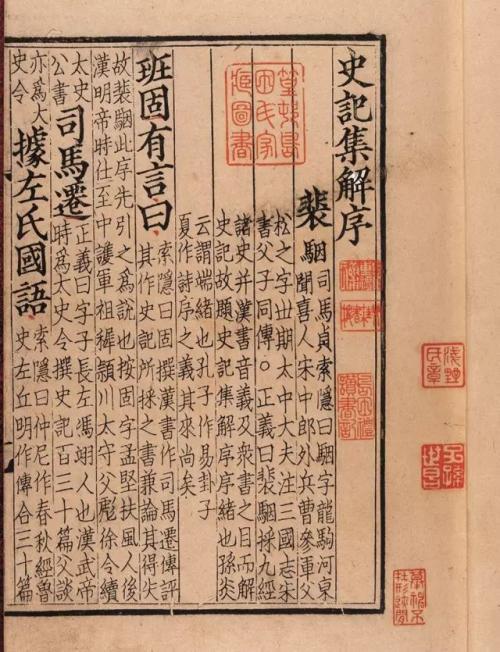 史記集解序
裴駰司馬貞索隱曰駰字龍駒河東
聞喜人宋中郎外兵曹參軍父
松之字丗期太中大夫注三國志宋
書父子同傳。正義曰裴駰採九經
諸史并漢書音義及衆書之目而解
史記故題史記集解序序緒也孫炎
云謂端緒也孔子作易卦子
夏作詩序之義其來尚矣
班固有言曰索隱曰固撰漢書作司馬遷傳評
其作史記所採之書兼論其得失
故裴駰此序先引之爲說也按固字孟堅扶風人後
漢明帝時仕至中護軍祖穉潁川太守父彪徐令續
太史
公書
司馬遷正義曰字子長左馮翊人也漢武帝
時爲太史令撰史記百三十篇父談
亦爲太
史令
據左氏國語索隱曰仲尼作春秋經魯
史左丘明作傳合三十篇
篁邨島
田氏家
藏圖書